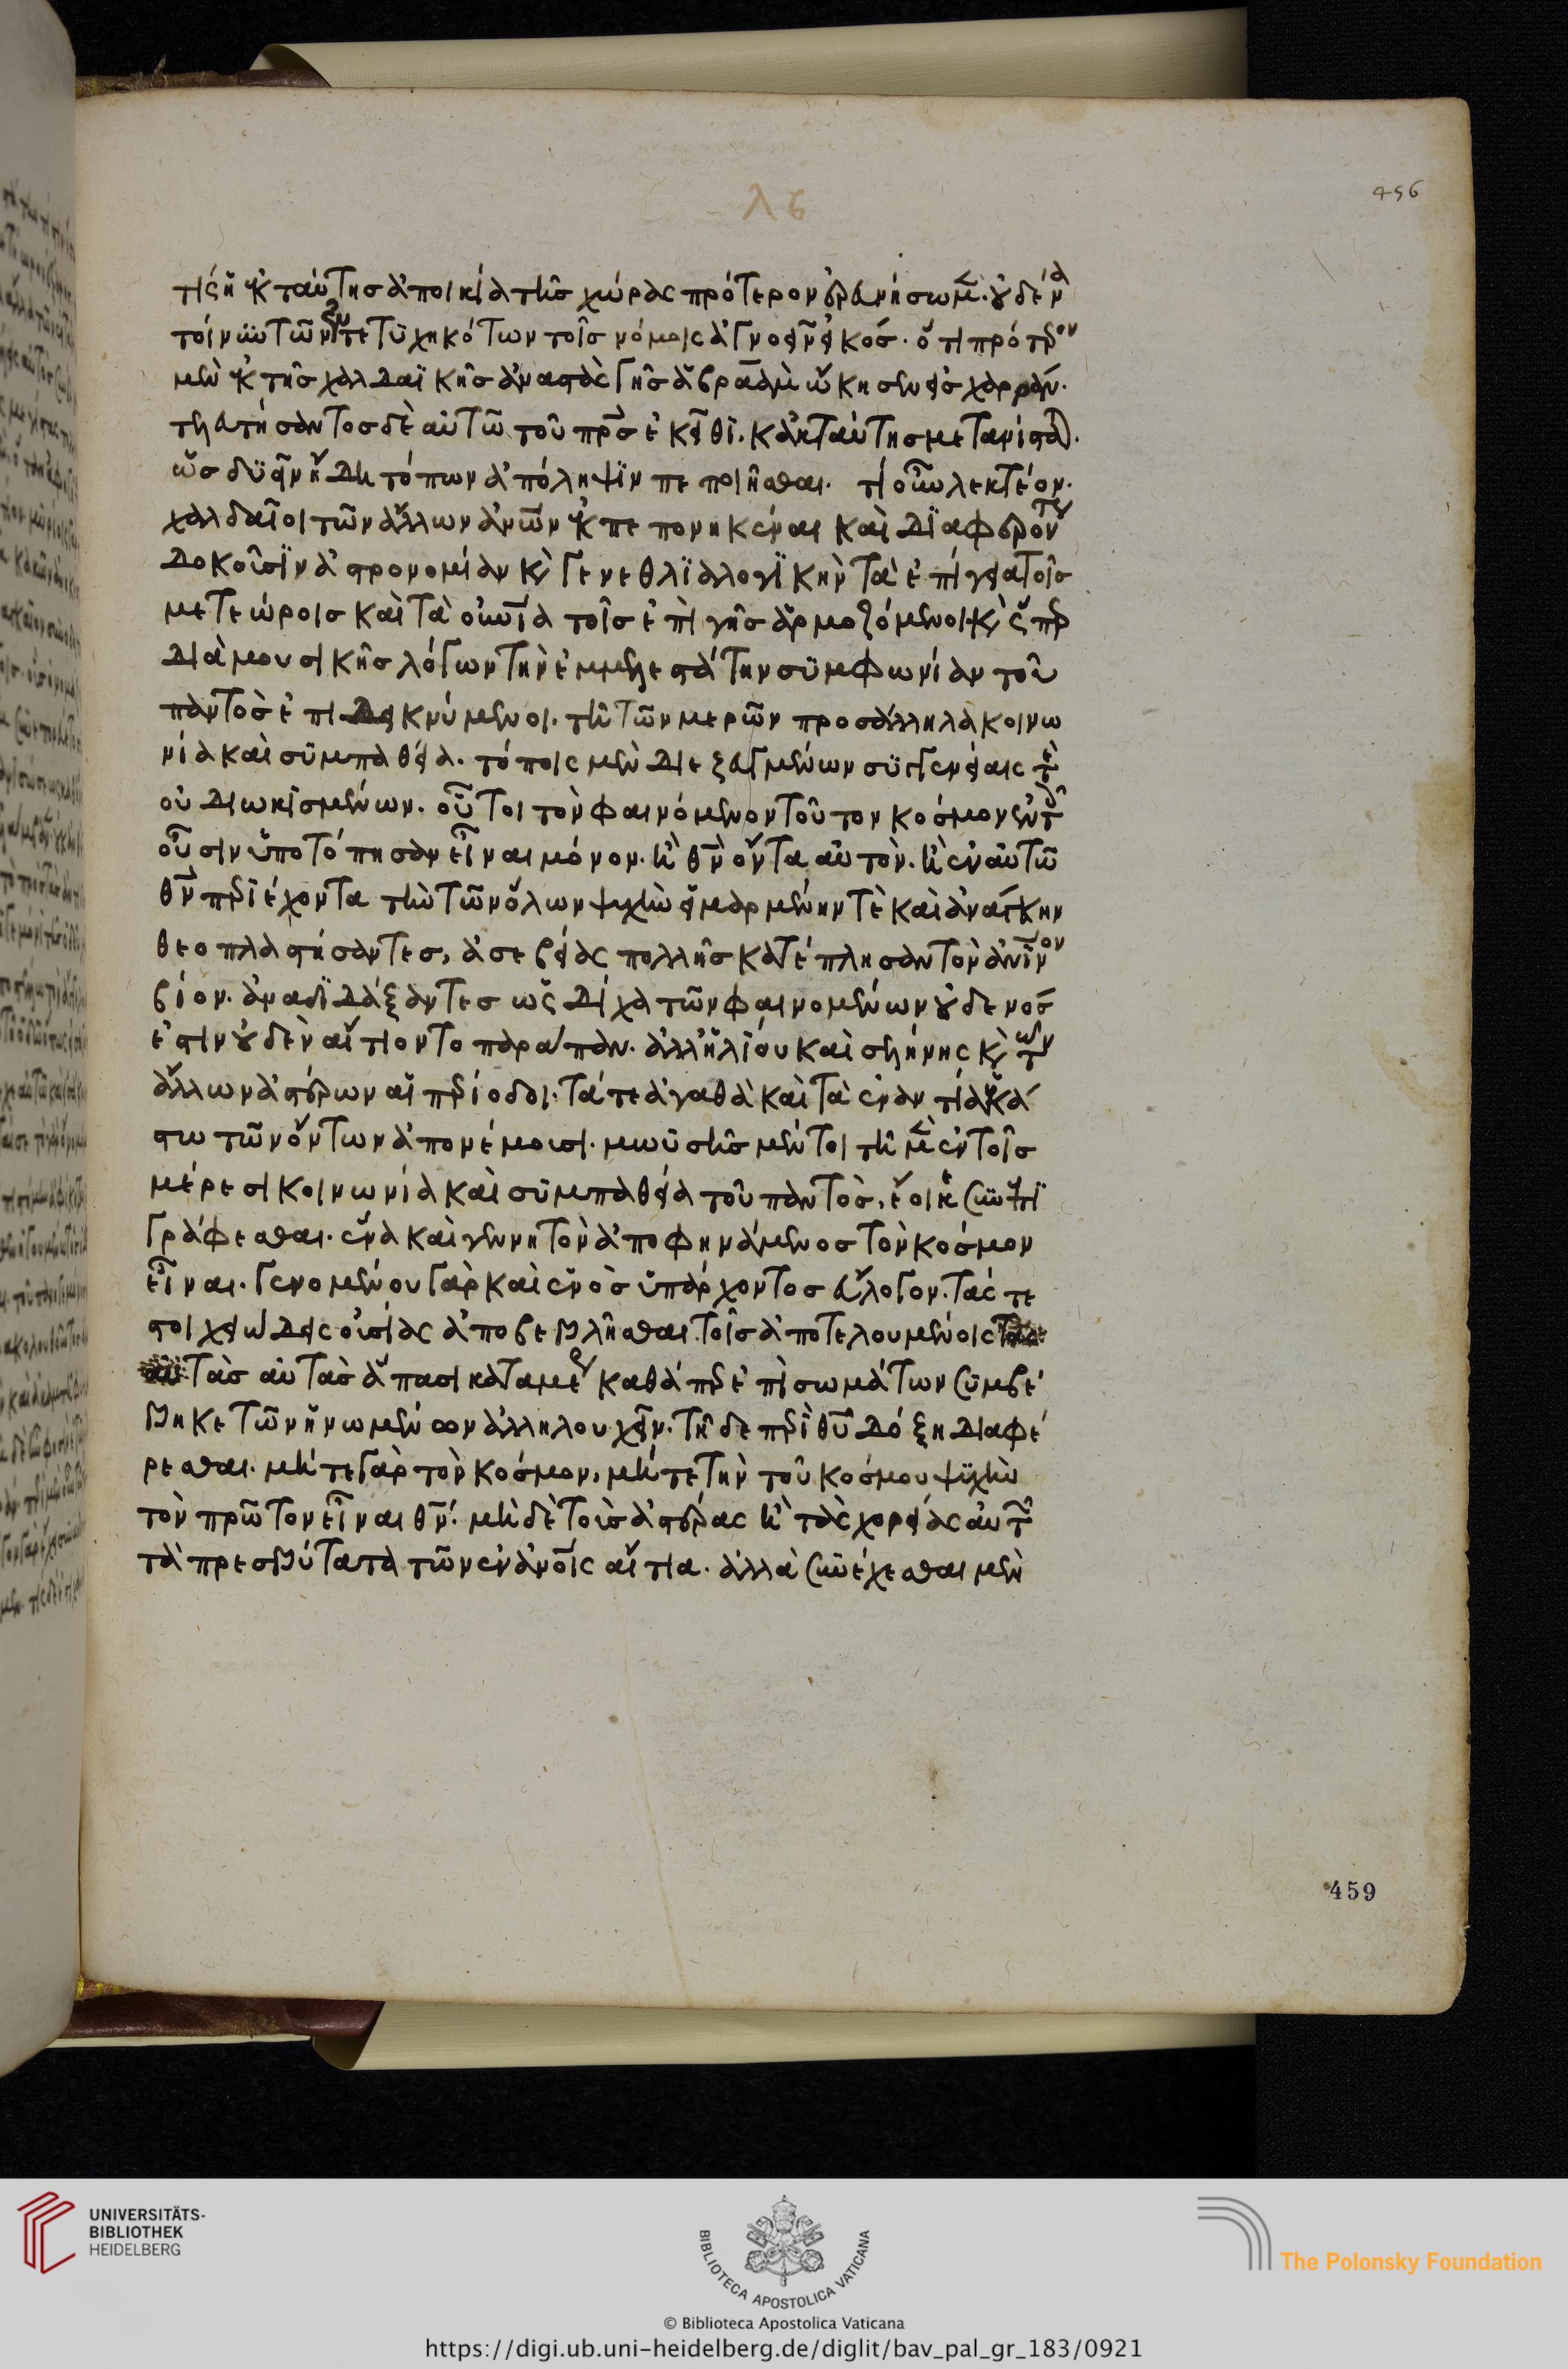 λϛ
456
τίς ἡ ἐκ ταύτης ἀποικία τῆς χώρας πρότερον ἐρευνήσωμεν· οὐδένα
τοίνυν τῶν ἐντετυχηκότων τοῖς νόμοις ἀγνοεῖν εἰκός· ὅτι πρότερον
μὲν ἐκ τῆς χαλδαϊκῆς ἀναστὰς γῆς ἀβραὰμ ὤκησεν εἰς χαρράν·
τελευτήσαντος δὲ αὐτῶ τοῦ πρς ἐκεῖθι· κἀκ ταύτης μετανίσταται·
ὡς δυεῖν ἤδη τόπων ἀπόληψϊν πεποιῆσθαι· τί οὖν λεκτέον·
χαλδαῖοι τῶν ἄλλων ἀνων ἐκπεπονηκέναι καὶ διαφερόντως
δοκοῦσιν ἀστρονομίαν καὶ γενεθλϊαλογϊκὴν τὰ ἐπίγεια τοῖς
μετεώροις καὶ τὰ οὐνια τοῖς ἐπὶ γῆς ἁρμοζόμενοι· καὶ ὥσπερ
διὰ μουσικῆς λόγων τὴν ἐμμελεστάτην συμφωνίαν τοῦ
παντὸς ἐπιδεικνύμενοι· τῆ τῶν μερῶν προσάλληλα κοινω
νία καὶ συμπαθεία· τόποις μὲν διεζευγμένων συγγενείαις δὲ
οὐ διωκισμένων· οὗτοι τὸν φαινόμενον τοῦτον κόσμον ἐν τοῖς
οὖσιν ὑποτόπησαν εἶναι μόνον· ἢ θν ὄντα αὐτὸν· ἢ ἐν αὐτῶ
θν περϊέχοντα τὴν τῶν ὅλων ψυχὴν εἱμαρμένην τὲ καὶ ἀνάγκην
θεοπλαστήσαντες, ἀσεβείας πολλῆς κατέπλησαν τὸν ἀνινον
βίον· ἀναδϊδάξαντες ὡς δίχα τῶν φαινομένων οὐδενός
ἐστιν οὐδὲν αἴτιον τὸ παράπαν· ἀλλ' ἡλίου καὶ σελήνης καὶ τῶν
ἄλλων ἀστέρων αἱ περίοδοι· τά τε ἀγαθὰ καὶ τὰ ἐναντία ἑκά
στω τῶν ὄντων ἀπονέμουσι· μωϋσῆς μέντοι τῆ μὲν ἐν τοῖς
μέρεσι κοινωνία καὶ συμπαθεία τοῦ παντὸς, ἔοικε συνεπϊ
γράφεσθαι· ἕνα καὶ γενητὸν ἀποφηνάμενος τὸν κόσμον
εἶναι· γενομένου γὰρ καὶ ἑνὸς ὑπάρχοντος εὔλογον· τάς τε
στοιχειώδεις οὐσίας ἀποβεβλῆσθαι τοῖς ἀποτελουμένοις
τὰς αὐτὰς ἅπασι κατὰ μέρη καθάπερ ἐπὶ σωμάτων συμβέ
βηκε τῶν ἡνωμένων ἀλληλουχεῖν· τῆ δὲ περὶ θυ δόξη διαφέ
ρεσθαι· μήτε γὰρ τὸν κόσμον, μήτε τὴν τοῦ κόσμου ψυχὴν
τὸν πρῶτον εἶναι θν· μηδὲ τοὺς ἀστέρας ἢ τὰς χορείας αὐτῶν
τὰ πρεσβύτατα τῶν ἐν ἀνοις αἴτια· ἀλλὰ συνέχεσθαι μὲν
459
UNIVERSITÄTS-
BIBLIOTHEK
HEIDELBERG
BIBLIOTECA APOSTOLICA VATICANA
The Polonsky Foundation
© Biblioteca Apostolica Vaticana
https://digi.ub.uni-heidelberg.de/diglit/bav_pal_gr_183/0921